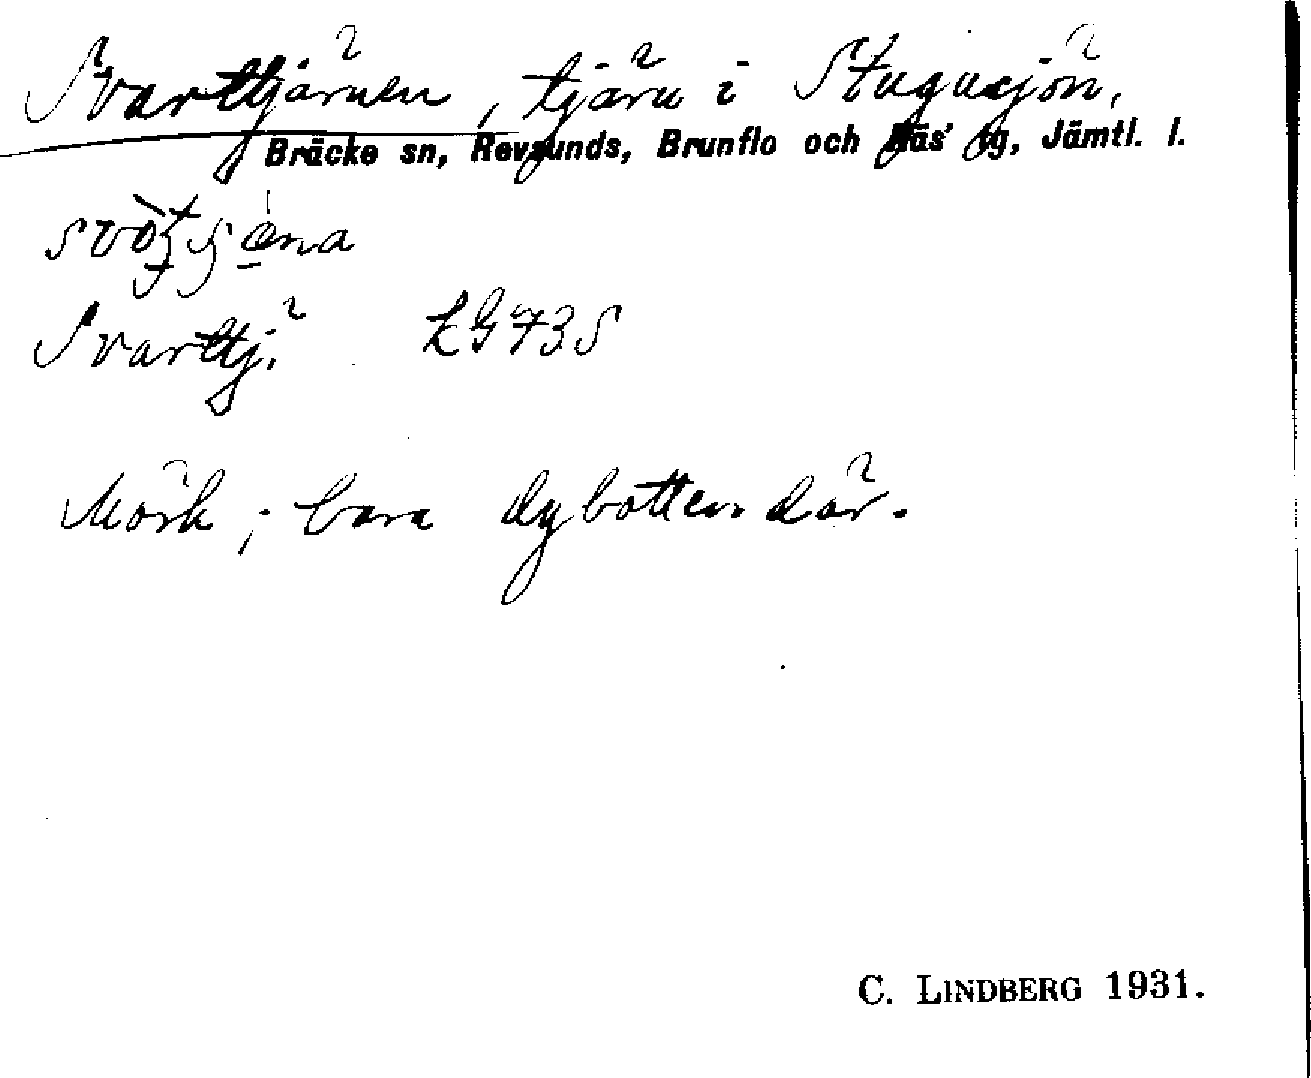 Svarttjärnen, tjärn i Stugusjön,
Bräcke sn, Revsunds, Brunflo och Näs' tg, Jämtl. l.
Svarttj. LG 73 S
Mörk; bara dybotten där.
C. LINDBERG 1931.